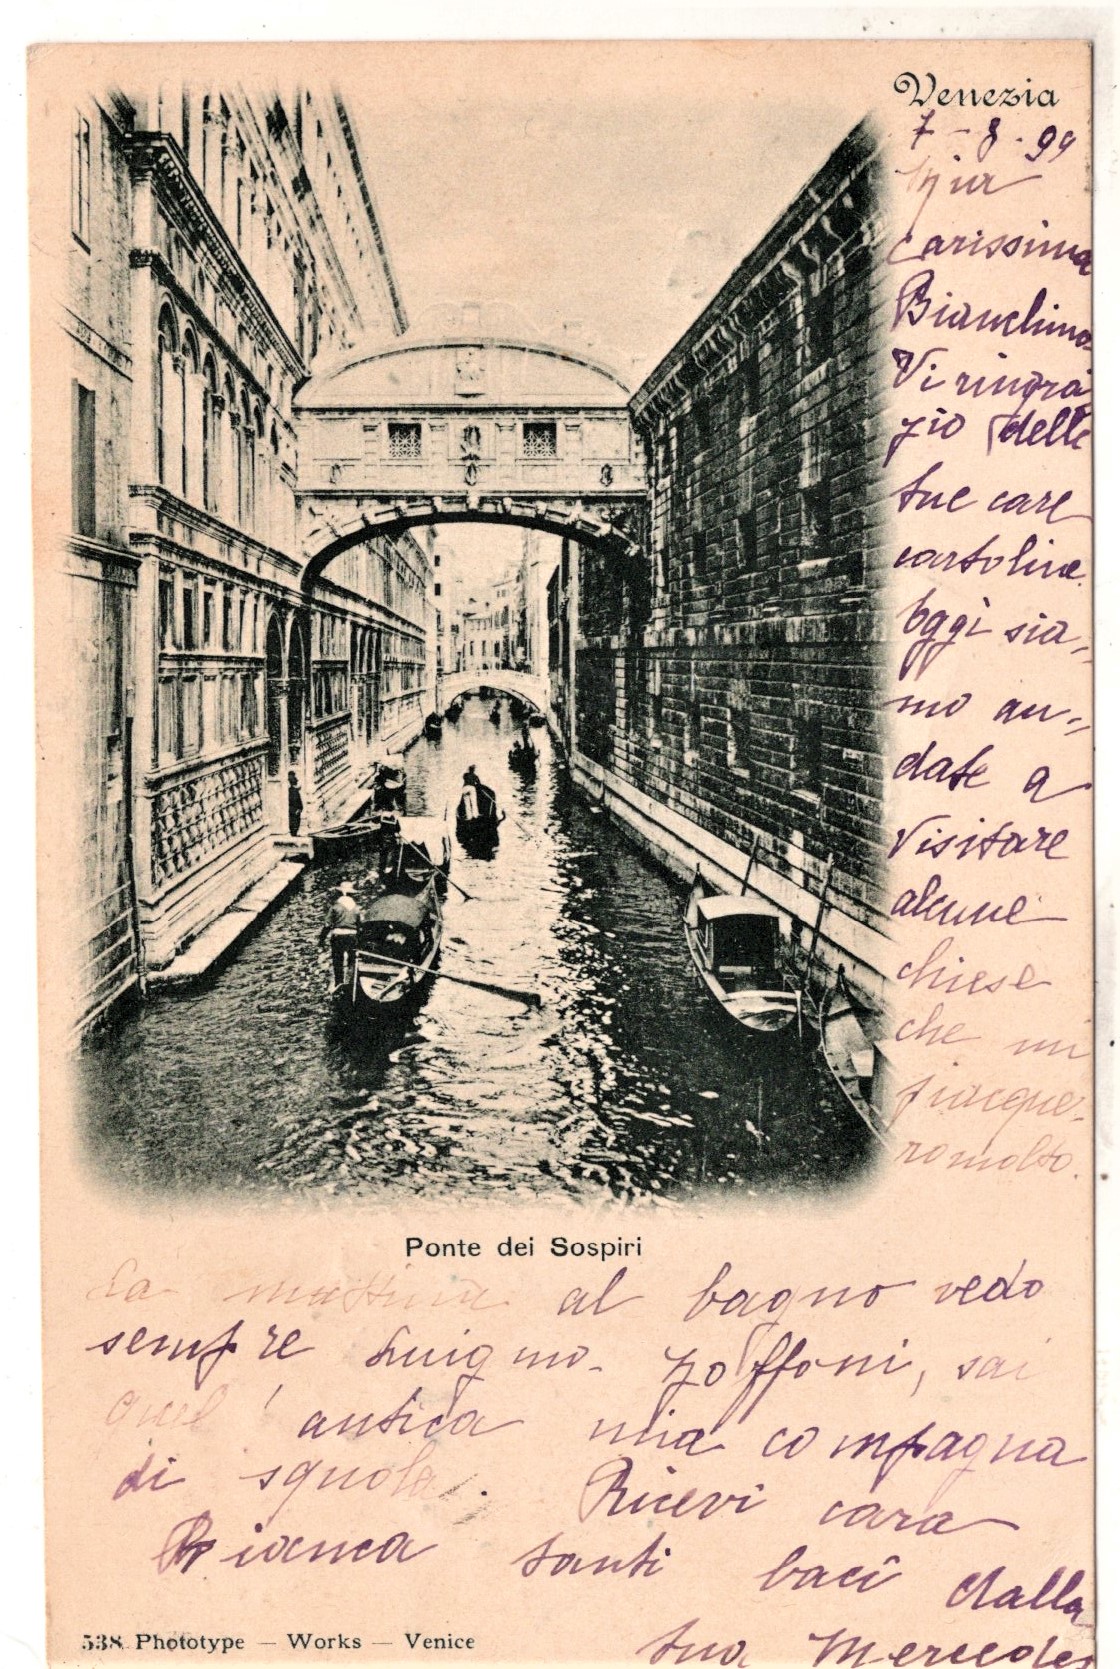 Venezia
7 - 8 - 99
Mia
carissima
Bianchina
Vi ringra
zio delle
tue care
cartoline.
Oggi sia,,
mo an,,
date a
visitare
alcune
chiese
che mi
piacque-
ro molto.
Ponte dei Sospiri
La mattina al bagno vedo
sempre Zoffoni, sai
quel' antica mia compagna
di squola. Ricevi cara
Bianca tanti baci dalla
tua Mercedes
538 Phototype — Works — Venice